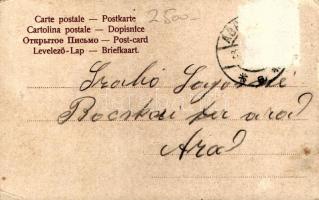 Carte postale — Postkarte
Cartolina postale — Dopisnice
Открытое Письмо — Post-card
Levelező-Lap — Briefkaart.
2500-
Szabó
Bocskai
Arad